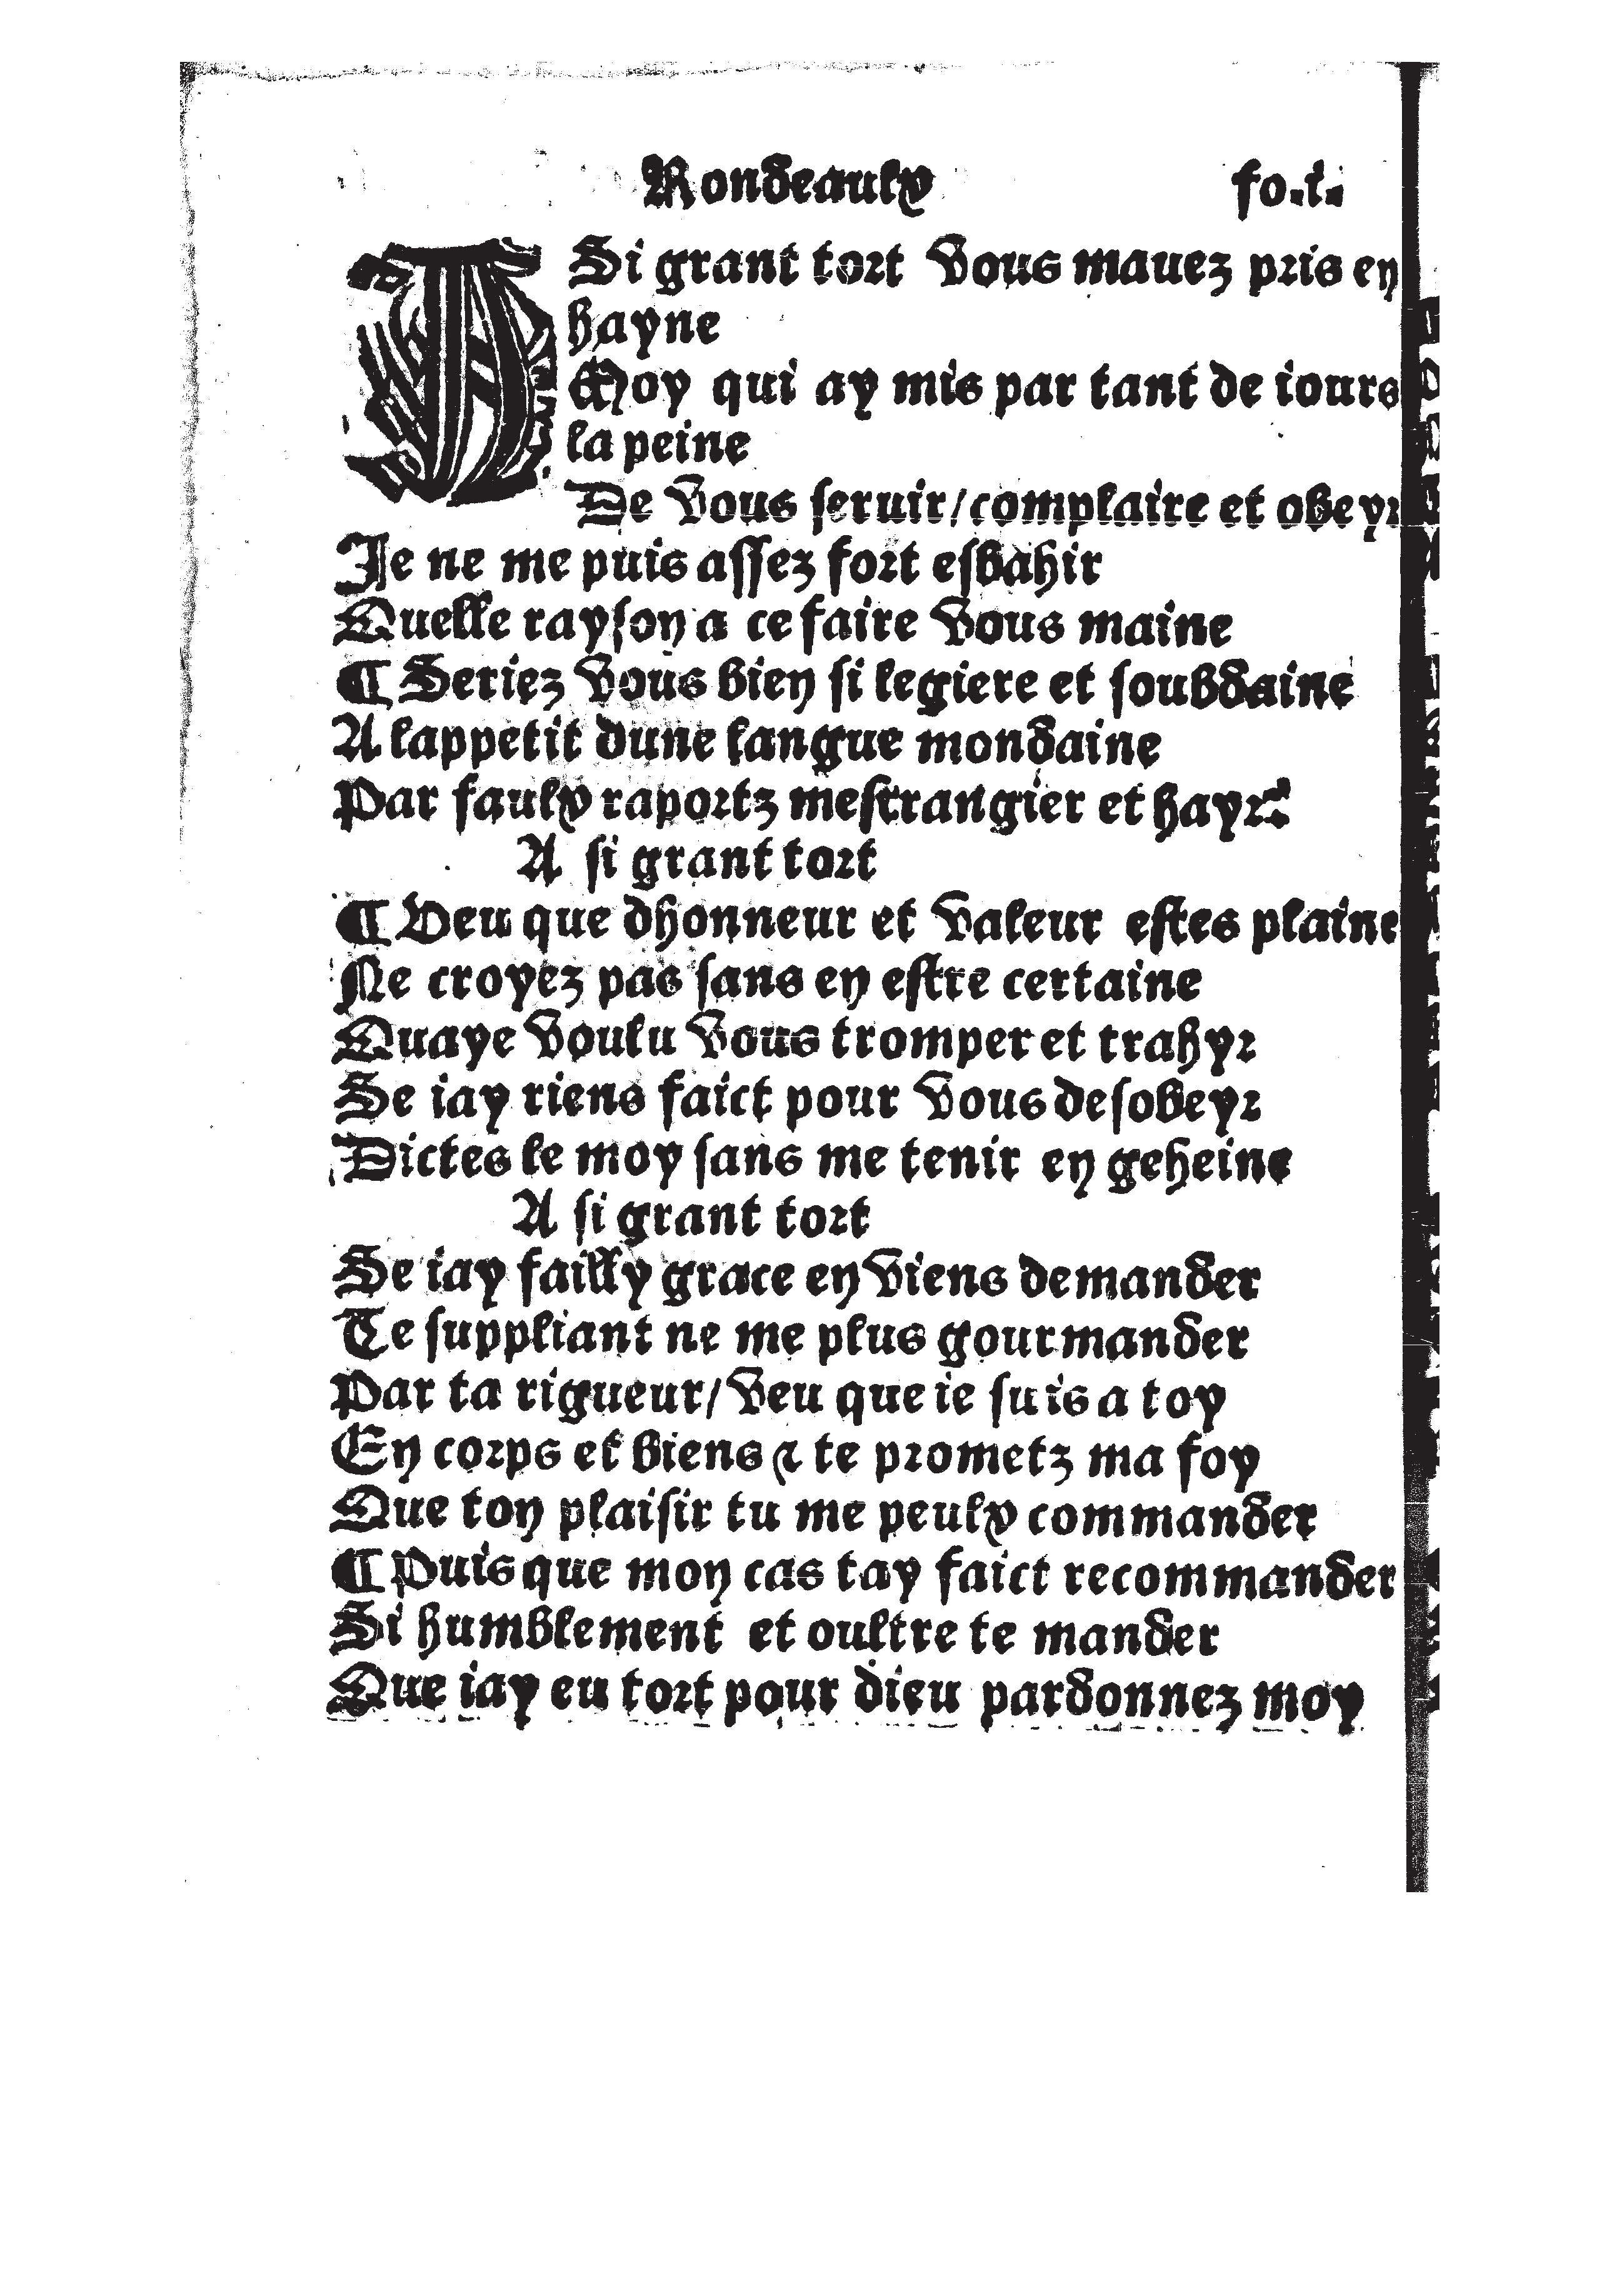 Rondeaulx fo.i.
A Si grant tort vous mauez pris en
hayne
Moy qui ay mis par tant de iours
la peine
De vous seruir/complaire et obeyr
Je ne me puis assez fort esbahir
Quelle rayson a ce faire vous maine
¶ Seriez vous bien si legiere et soubdaine
A lappetit dune langue mondaine
Par faulx raportz mestrangier et hayr
A si grant tort
¶ Veu que dhonneur et valeur estes plaine
Ne croyez pas sans en estre certaine
Quaye voulu vous tromper et trahyr
Se iay riens faict pour vous desobeyr
Dictes le moy sans me tenir en geheine
A si grant tort
Se iay failly grace en viens demander
Te suppliant ne me plus gourmander
Par ta rigueur/veu que ie suis a toy
En corps et biens ⁊ te prometz ma foy
Que ton plaisir tu me peulx commander
¶ Puis que mon cas tay faict recommander
Si humblement et oultre te mander
Que iay eu tort pour dieu pardonnez moy